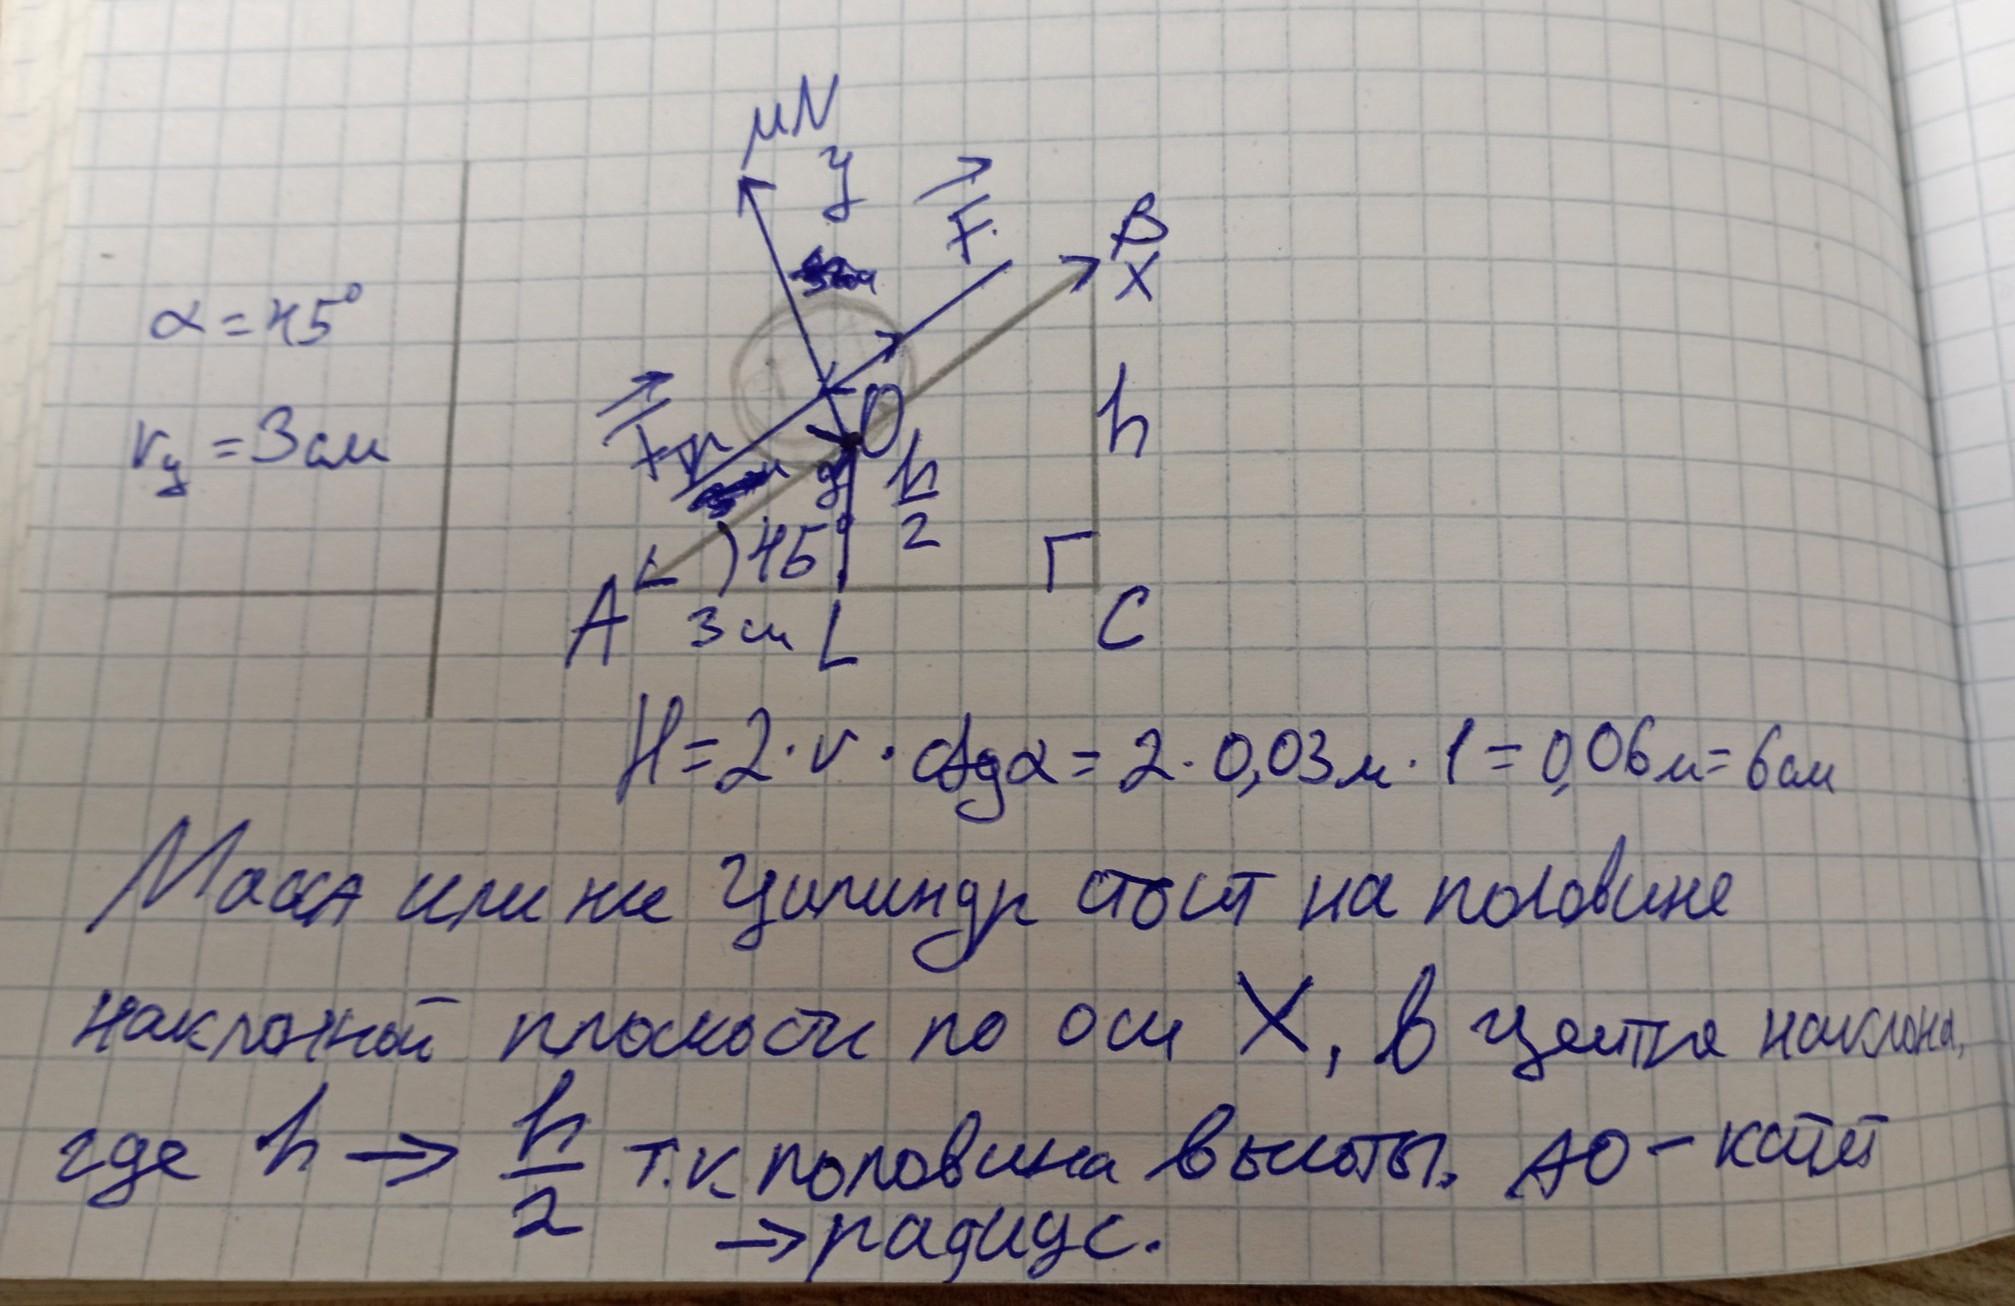 μN
y
F
B
X
α = 45°
r_ц = 3 см
Fтр
O
h
h/2
45°
A
3 см
L
C
H = 2 · r · ctgα = 2 · 0,03 м · 1 = 0,06 м = 6 см
Масса или же цилиндр стоит на половине
наклонной плоскости по оси X, в центре наклона,
где h → h/2 т.к половина высоты. AO – катет
→ радиус.